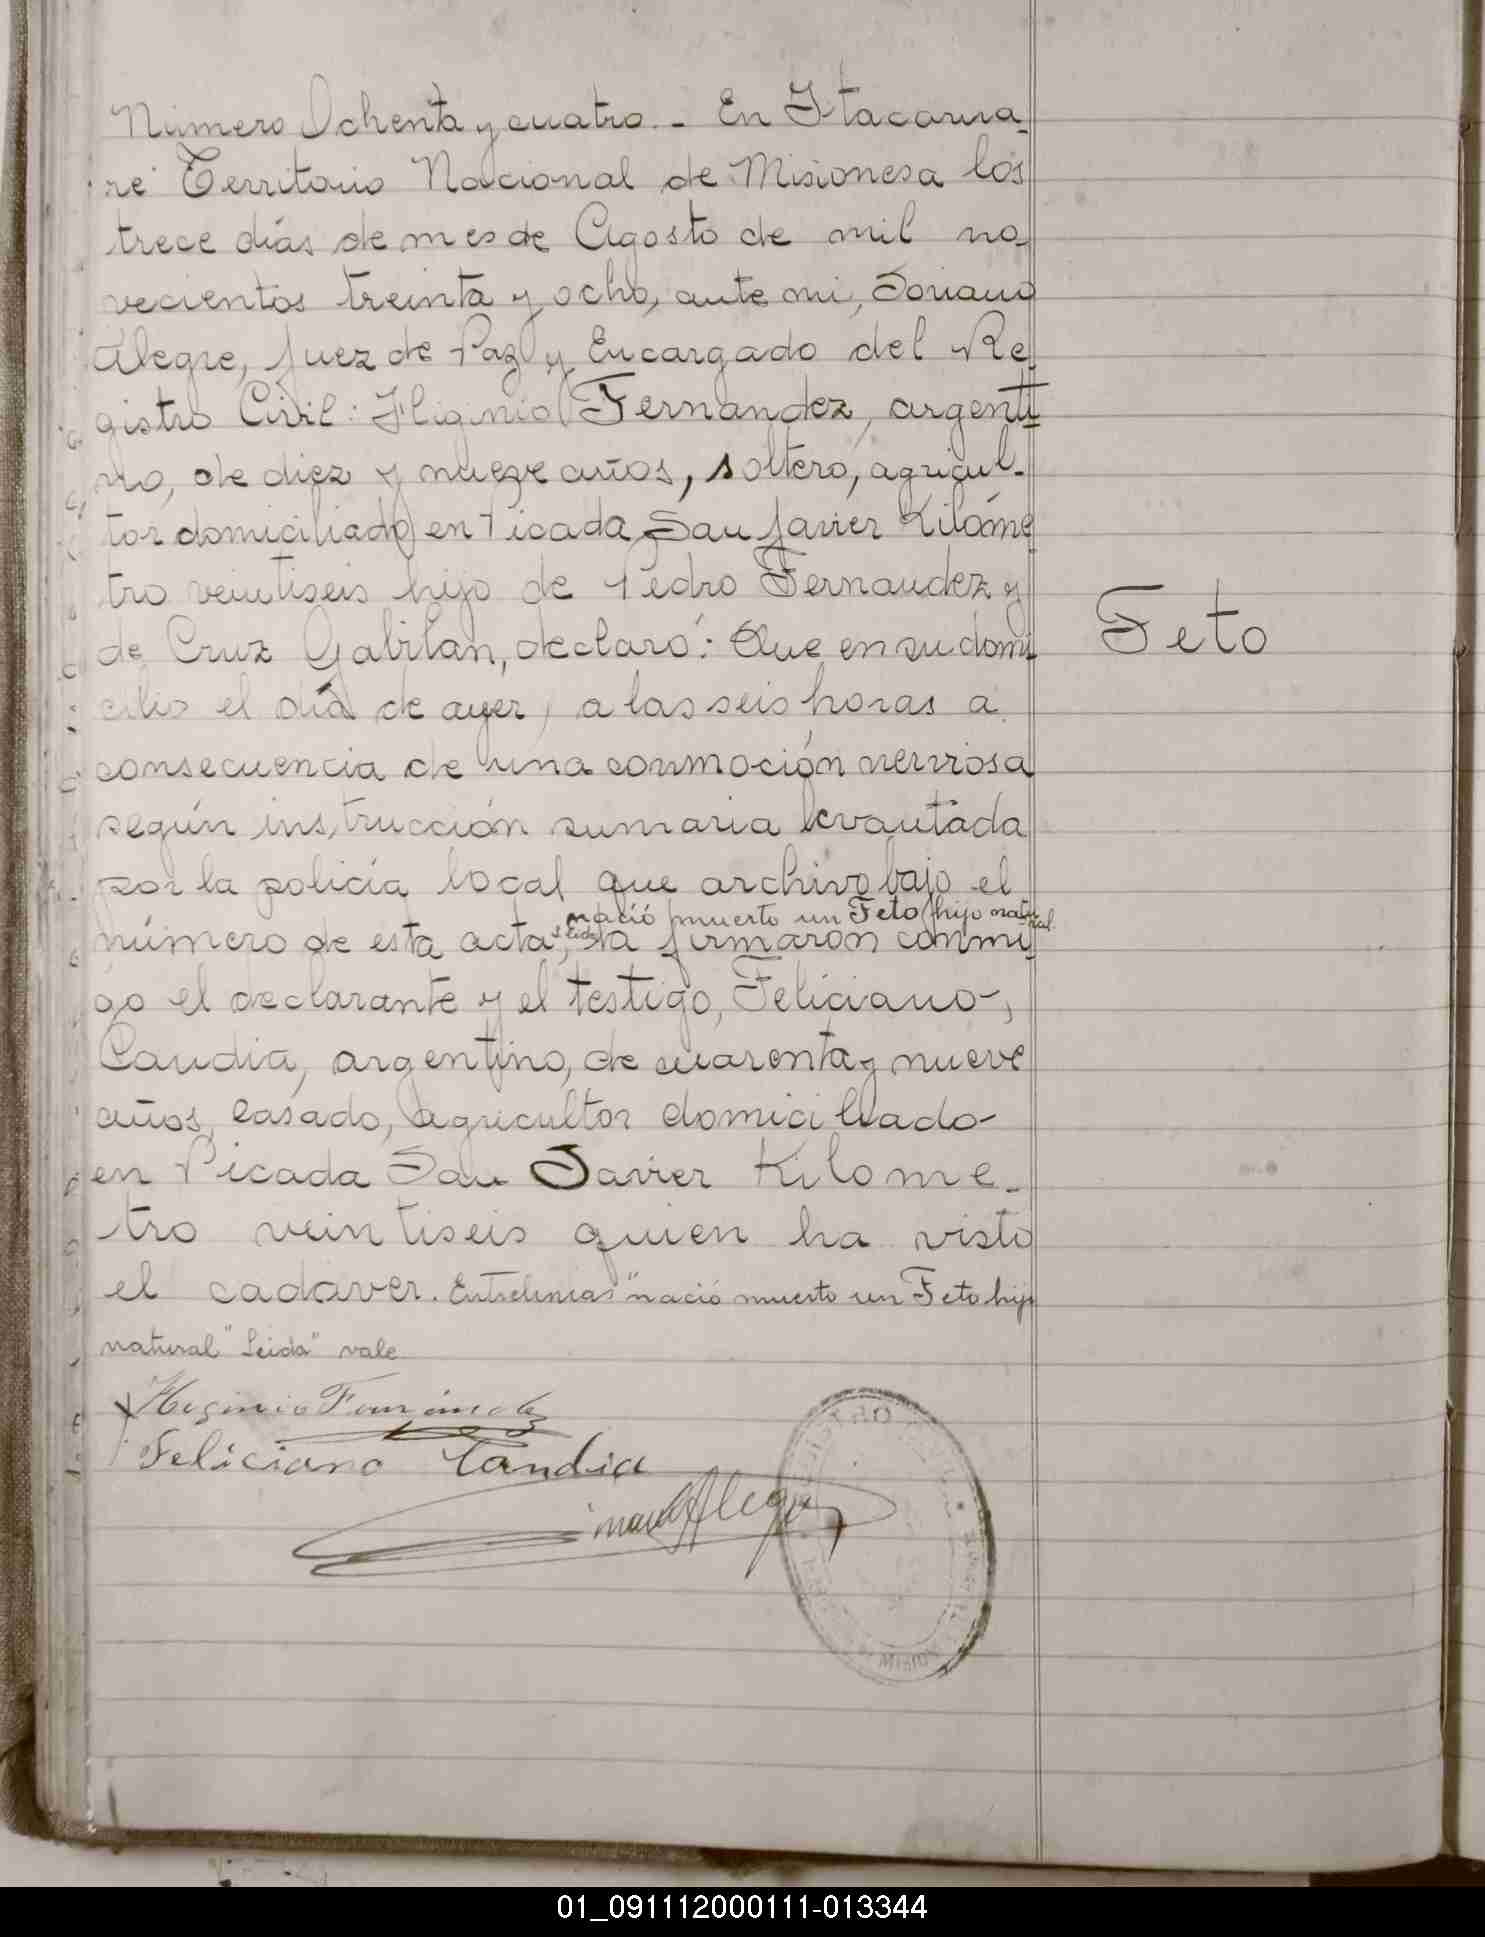 Número Ochenta y cuatro. - En Itacarua-
ré Territorio Nacional de Misiones a los
trece días de mes de Agosto de mil no-
vecientos treinta y ocho, ante mi, Soriano
Alegre, Juez de Paz y Encargado del Re-
gistro Civil: Higinio Fernandez, argenti-
no, de diez y nueve años, soltero, agricul-
tor domiciliado en Picada San Javier Kilóme-
tro veintiseis hijo de Pedro Fernandez y
de Cruz Gabilan, declaró: Que en su domi-
Feto
cilio el día de ayer, a las seis horas a
consecuencia de una conmoción nerviosa
según instrucción sumaria levantada
por la policía local que archivo bajo el
nació muerto un Feto hijo natural.
número de esta acta, Leida la firmaron conmi-
go el declarante y el testigo, Feliciano,
Candia, argentino, de cuarenta y nueve
años, casado, agricultor domiciliado
en Picada San Javier Kilome-
tro veintiseis quien ha visto
el cadaver. Entrelineas "nació muerto un Feto hijo
natural" "Leida" vale
Higinio Fernández
Feliciano Candia
Alegre
01_091112000111-013344